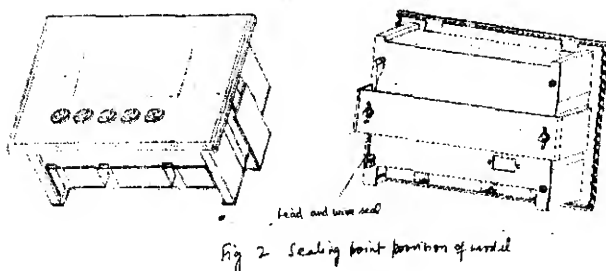 Lead and wire seal
Fig 2 Sealing point provision of model